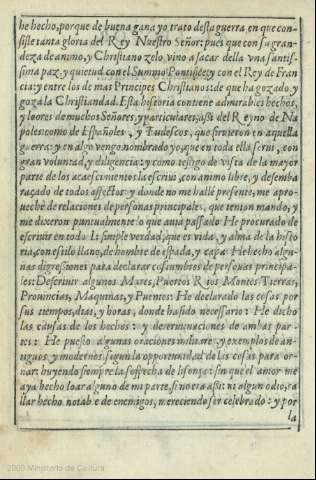 he hecho, porque de buena gana yo trato desta guerra, en que con-
siste tanta gloria del Rey Nuestro Señor: pues que con su gran-
deza de animo, y Christiano zelo, vino a sacar della vna santis-
sima paz, y quietud, con el Summo Pontifice, y con el Rey de Fran-
cia: y entre los de mas Principes Christianos: de que ha gozado, y
goza la Christiandad. Esta historia contiene admirables hechos,
y loores de muchos Señores, y particulares, assi del Reyno de Na-
poles: como de Españoles, y Tudescos, que siruieron en aquella
guerra: y en algo vengo nombrado yo, que en toda ella serui, con
gran voluntad, y diligencia: y como testigo de vista de la mayor
parte de los acaescimientos la escriui, con animo libre, y desemba
raçado de todos affectos: y donde no me hallé presente, me apro-
ueché de relaciones de personas principales, que tenian mando, y
me dixeron puntualmente lo que auia passado. He procurado de
escriuir en todo la simple verdad, que es vida, y alma de la histo
ria, con estilo llano, de hombre de espada, y capa. He hecho algu-
nas digressiones para declarar costumbres de personas principa-
les: Descriuir algunos Mares, Puertos Rios Montes, Tierras,
Prouincias, Maquinas, y Puentes: He declarado las cosas por
sus tiempos, dias, y horas, donde ha sido necessario: He dicho
las causas de los hechos: y determinaciones de ambas par-
tes: He puesto algunas oraciones militares, y exemplos de an-
tiguos, y modernos: segun la opportunidad de las cosas para or-
nar: huyendo siempre la sospecha de lisonja: sin que el amor me
aya hecho loar alguno de mi parte, si no era assi: ni algun odio, ca
llar hecho notable de enemigos, mereciendo ser celebrado: y por
la
2009 Ministerio de Cultura